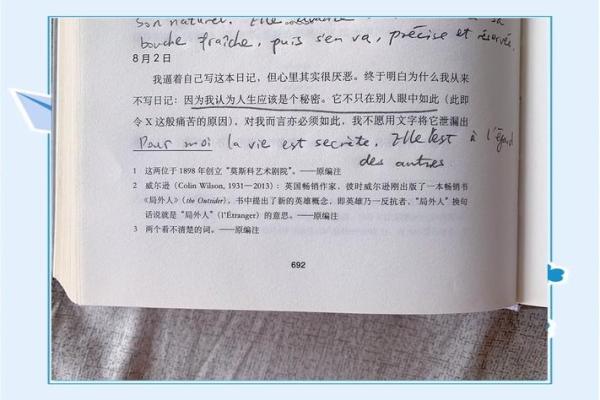 son naturel. Elle
bouche fraîche, puis s'en va, précise et réservée.
8月2日
我逼着自己写这本日记，但心里其实很厌恶。终于明白为什么我从来
不写日记：因为我认为人生应该是个秘密。它不只在别人眼中如此（此即
令X这般痛苦的原因），对我而言亦必须如此，我不愿用文字将它泄漏出
Pour moi la vie est secrète. Elle l'est à l'égard
des autres
1 这两位于1898年创立“莫斯科艺术剧院”。——原编注
2 威尔逊（Colin Wilson, 1931—2013）：英国畅销作家，彼时威尔逊刚出版了一本畅销书
《局外人》（the Outsider），书中提出了新的英雄概念，即英雄乃一反抗者，“局外人”换句
话说就是“局外人”（l'Étranger）的意思。——原编注
3 两个看不清楚的词。——原编注
692